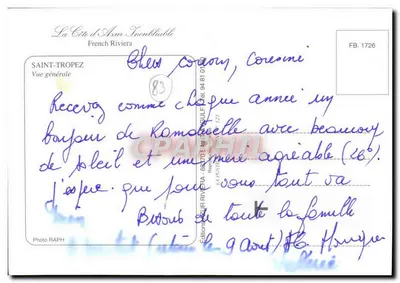 La Côte d'Azur Inoubliable
French Riviera
FB. 1726
SAINT-TROPEZ
Vue générale
83
Chers cousin, Cousine
Recevez comme chaque année un
bonjour de Ramatuelle avec beaucoup
de soleil et une mer agréable (26°).
j'espère que pour vous tout va
Bisous de toute la famille
le 9 Août
Photo RAPH
CPARPHIL